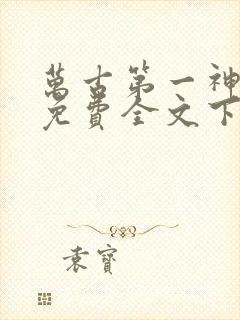 萬古第一神
免費全文下
袁寶